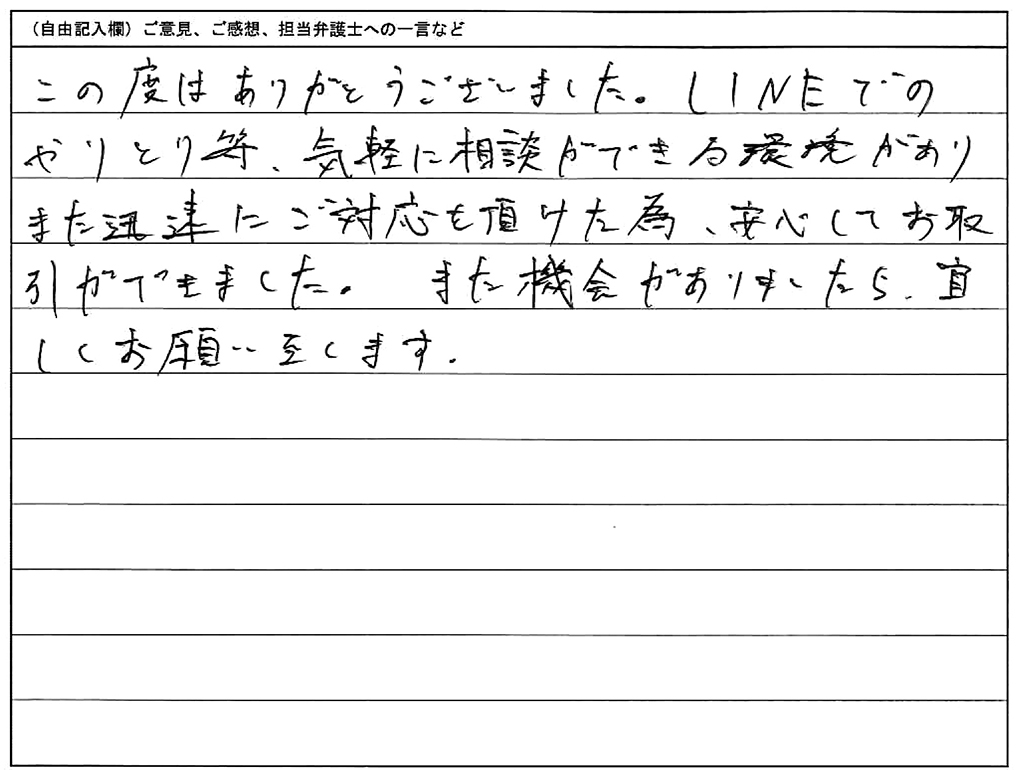 （自由記入欄）ご意見、ご感想、担当弁護士への一言など
この度はありがとうございました。LINEでの
やりとり等、気軽に相談ができる環境があり
また迅速にご対応を頂けた為、安心してお取
引ができました。また機会がありましたら、宜
しくお願い至します.